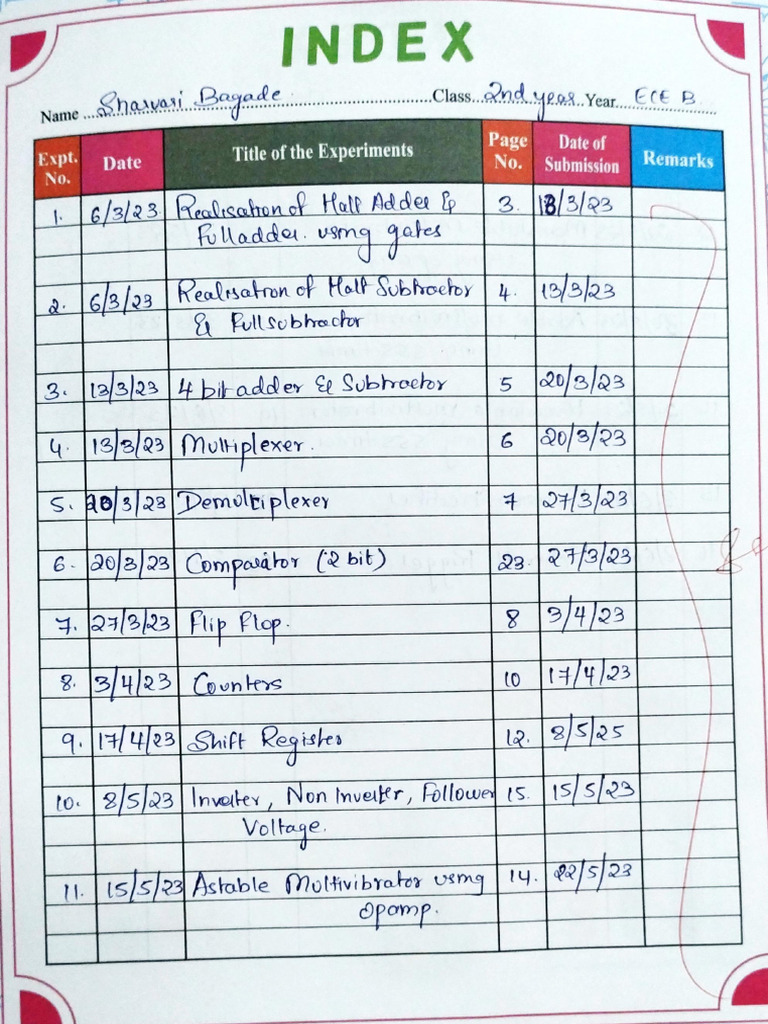 INDEX
Name Sharvari Bagade Class 2nd year Year ECE B
Expt. No. Date Title of the Experiments Page No. Date of Submission Remarks
1. 6/3/23 Realisation of Half Adder & 3. 13/3/23
Fulladder using gates
2. 6/3/23 Realisation of Half Subtractor 4. 13/3/23
& Fullsubtractor
3. 13/3/23 4 bit adder & Subtractor 5 20/3/23
4. 13/3/23 Multiplexer. 6 20/3/23
5. 20/3/23 Demultiplexer 7 27/3/23
6. 20/3/23 Comparator (2 bit) 23. 27/3/23
7. 27/3/23 Flip Flop. 8 3/4/23
8. 3/4/23 Counters 10 17/4/23
9. 17/4/23 Shift Register 12. 8/5/25
10. 8/5/23 Inverter, Non Inverter, Follower 15. 15/5/23
Voltage.
11. 15/5/23 Astable Multivibrator using 14. 22/5/23
opamp.